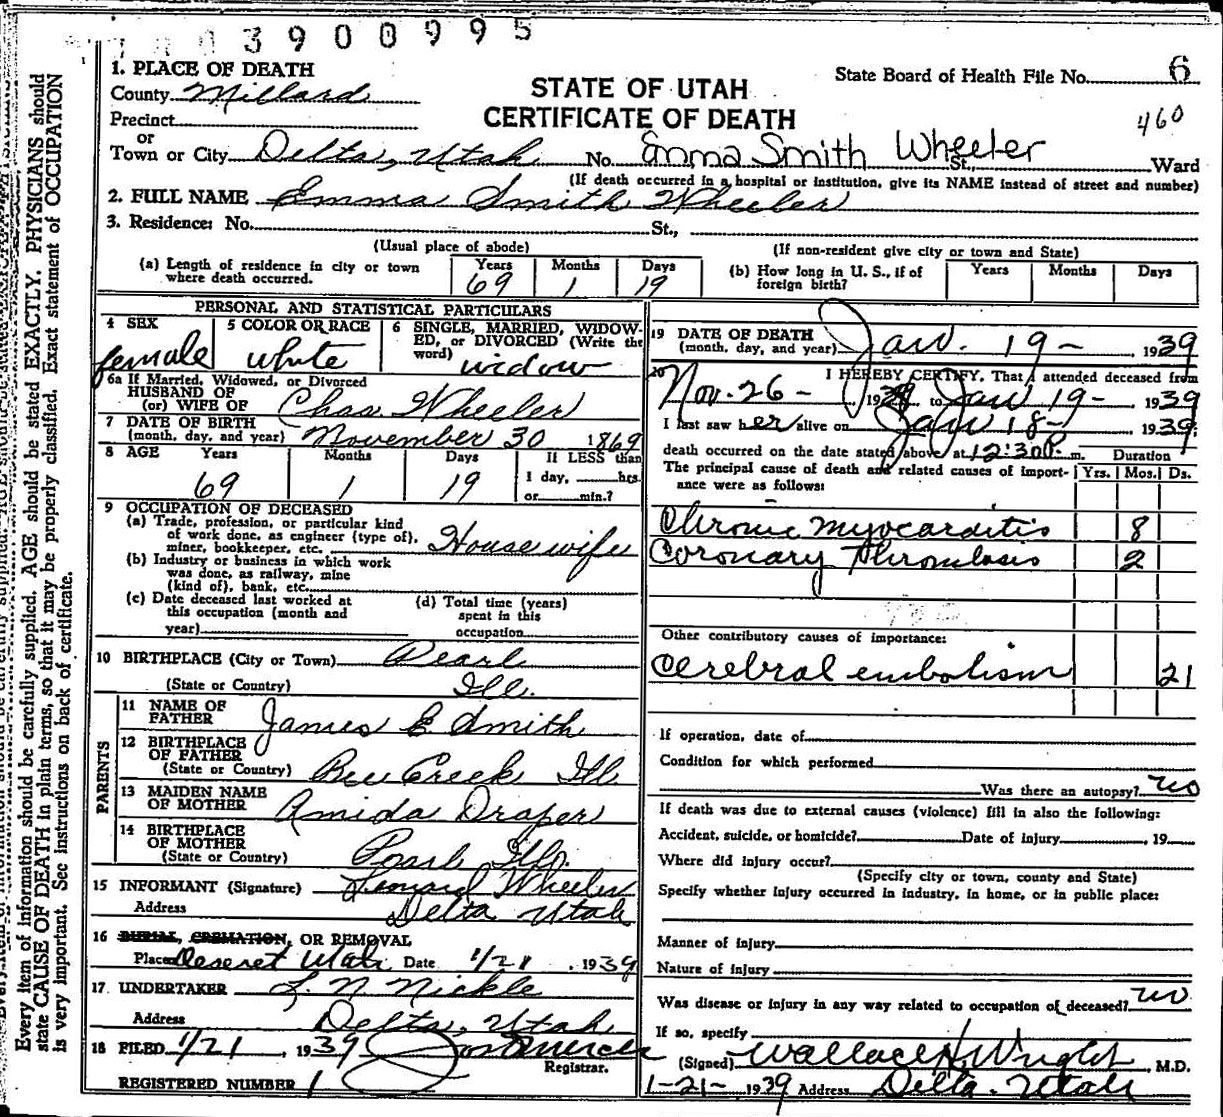 3900995
1. PLACE OF DEATH
County Millard
Precinct
or
Town or City Delta, Utah No. Emma Smith Wheeler St., Ward
STATE OF UTAH
CERTIFICATE OF DEATH
State Board of Health File No. 6
460
(If death occurred in a hospital or institution, give its NAME instead of street and number)
2. FULL NAME Emma Smith Wheeler
3. Residence: No. St.,
(Usual place of abode) (If non-resident give city or town and State)
(a) Length of residence in city or town where death occurred. Years 69 Months 1 Days 19
(b) How long in U. S., if of foreign birth? Years Months Days
PERSONAL AND STATISTICAL PARTICULARS
4 SEX female
5 COLOR OR RACE white
6 SINGLE, MARRIED, WIDOWED, or DIVORCED (Write the word) widow
6a If Married, Widowed, or Divorced
HUSBAND OF
(or) WIFE OF Chas Wheeler
7 DATE OF BIRTH
(month, day, and year) November 30 1869
8 AGE Years 69 Months 1 Days 19 If LESS than 1 day, hrs. or min.?
9 OCCUPATION OF DECEASED
(a) Trade, profession, or particular kind
of work done, as engineer (type of),
miner, bookkeeper, etc. Housewife
(b) Industry or business in which work
was done, as railway, mine
(kind of), bank, etc.
(c) Date deceased last worked at
this occupation (month and
year)
(d) Total time (years)
spent in this
occupation
10 BIRTHPLACE (City or Town) Pearl
(State or Country) Ill.
PARENTS
11 NAME OF
FATHER James E Smith
12 BIRTHPLACE
OF FATHER
(State or Country) Bee Creek Ill
13 MAIDEN NAME
OF MOTHER Amida Draper
14 BIRTHPLACE
OF MOTHER
(State or Country) Pearl Ill.
15 INFORMANT (Signature) Leonard Wheeler
Address Delta Utah
16 BURIAL, CREMATION, OR REMOVAL
Place Deseret Utah Date 1/21, 1939
17. UNDERTAKER L. N. Nickle
Address Delta, Utah
18 FILED 1/21, 1939
Registrar.
REGISTERED NUMBER 1
19 DATE OF DEATH
(month, day, and year) Jan. 19-, 1939
20 I HEREBY CERTIFY, That I attended deceased from
Nov. 26-, 19 to Jan 19-, 1939
I last saw her alive on Jan 18-, 1939;
death occurred on the date stated above at 12:30 P. m. Duration
The principal cause of death and related causes of importance were as follows: Yrs. Mos. Ds.
Chronic myocarditis 8
Coronary thrombosis 2
Other contributory causes of importance:
Cerebral embolism 21
If operation, date of
Condition for which performed
Was there an autopsy? no
If death was due to external causes (violence) fill in also the following:
Accident, suicide, or homicide? Date of injury, 19
Where did injury occur?
(Specify city or town, county and State)
Specify whether injury occurred in industry, in home, or in public place:
Manner of injury
Nature of injury
Was disease or injury in any way related to occupation of deceased? no
If so, specify
(Signed) Wallace H. Wright, M.D.
1-21-, 1939 Address Delta. Utah
Every item of information should be carefully supplied. AGE should be stated EXACTLY. PHYSICIANS should
state CAUSE OF DEATH in plain terms, so that it may be properly classified. Exact statement of OCCUPATION
is very important. See instructions on back of certificate.